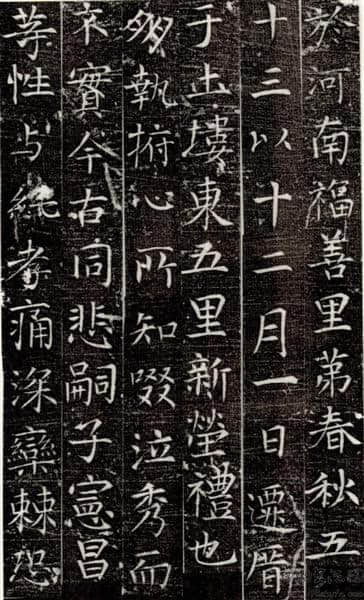 於河南福善里第春秋五
十三以十二月一日遷厝
于土塿東五里新塋禮也
執拊心所知啜泣秀而
不實今古同悲嗣子憲昌
等性与純孝痛深欒棘恐